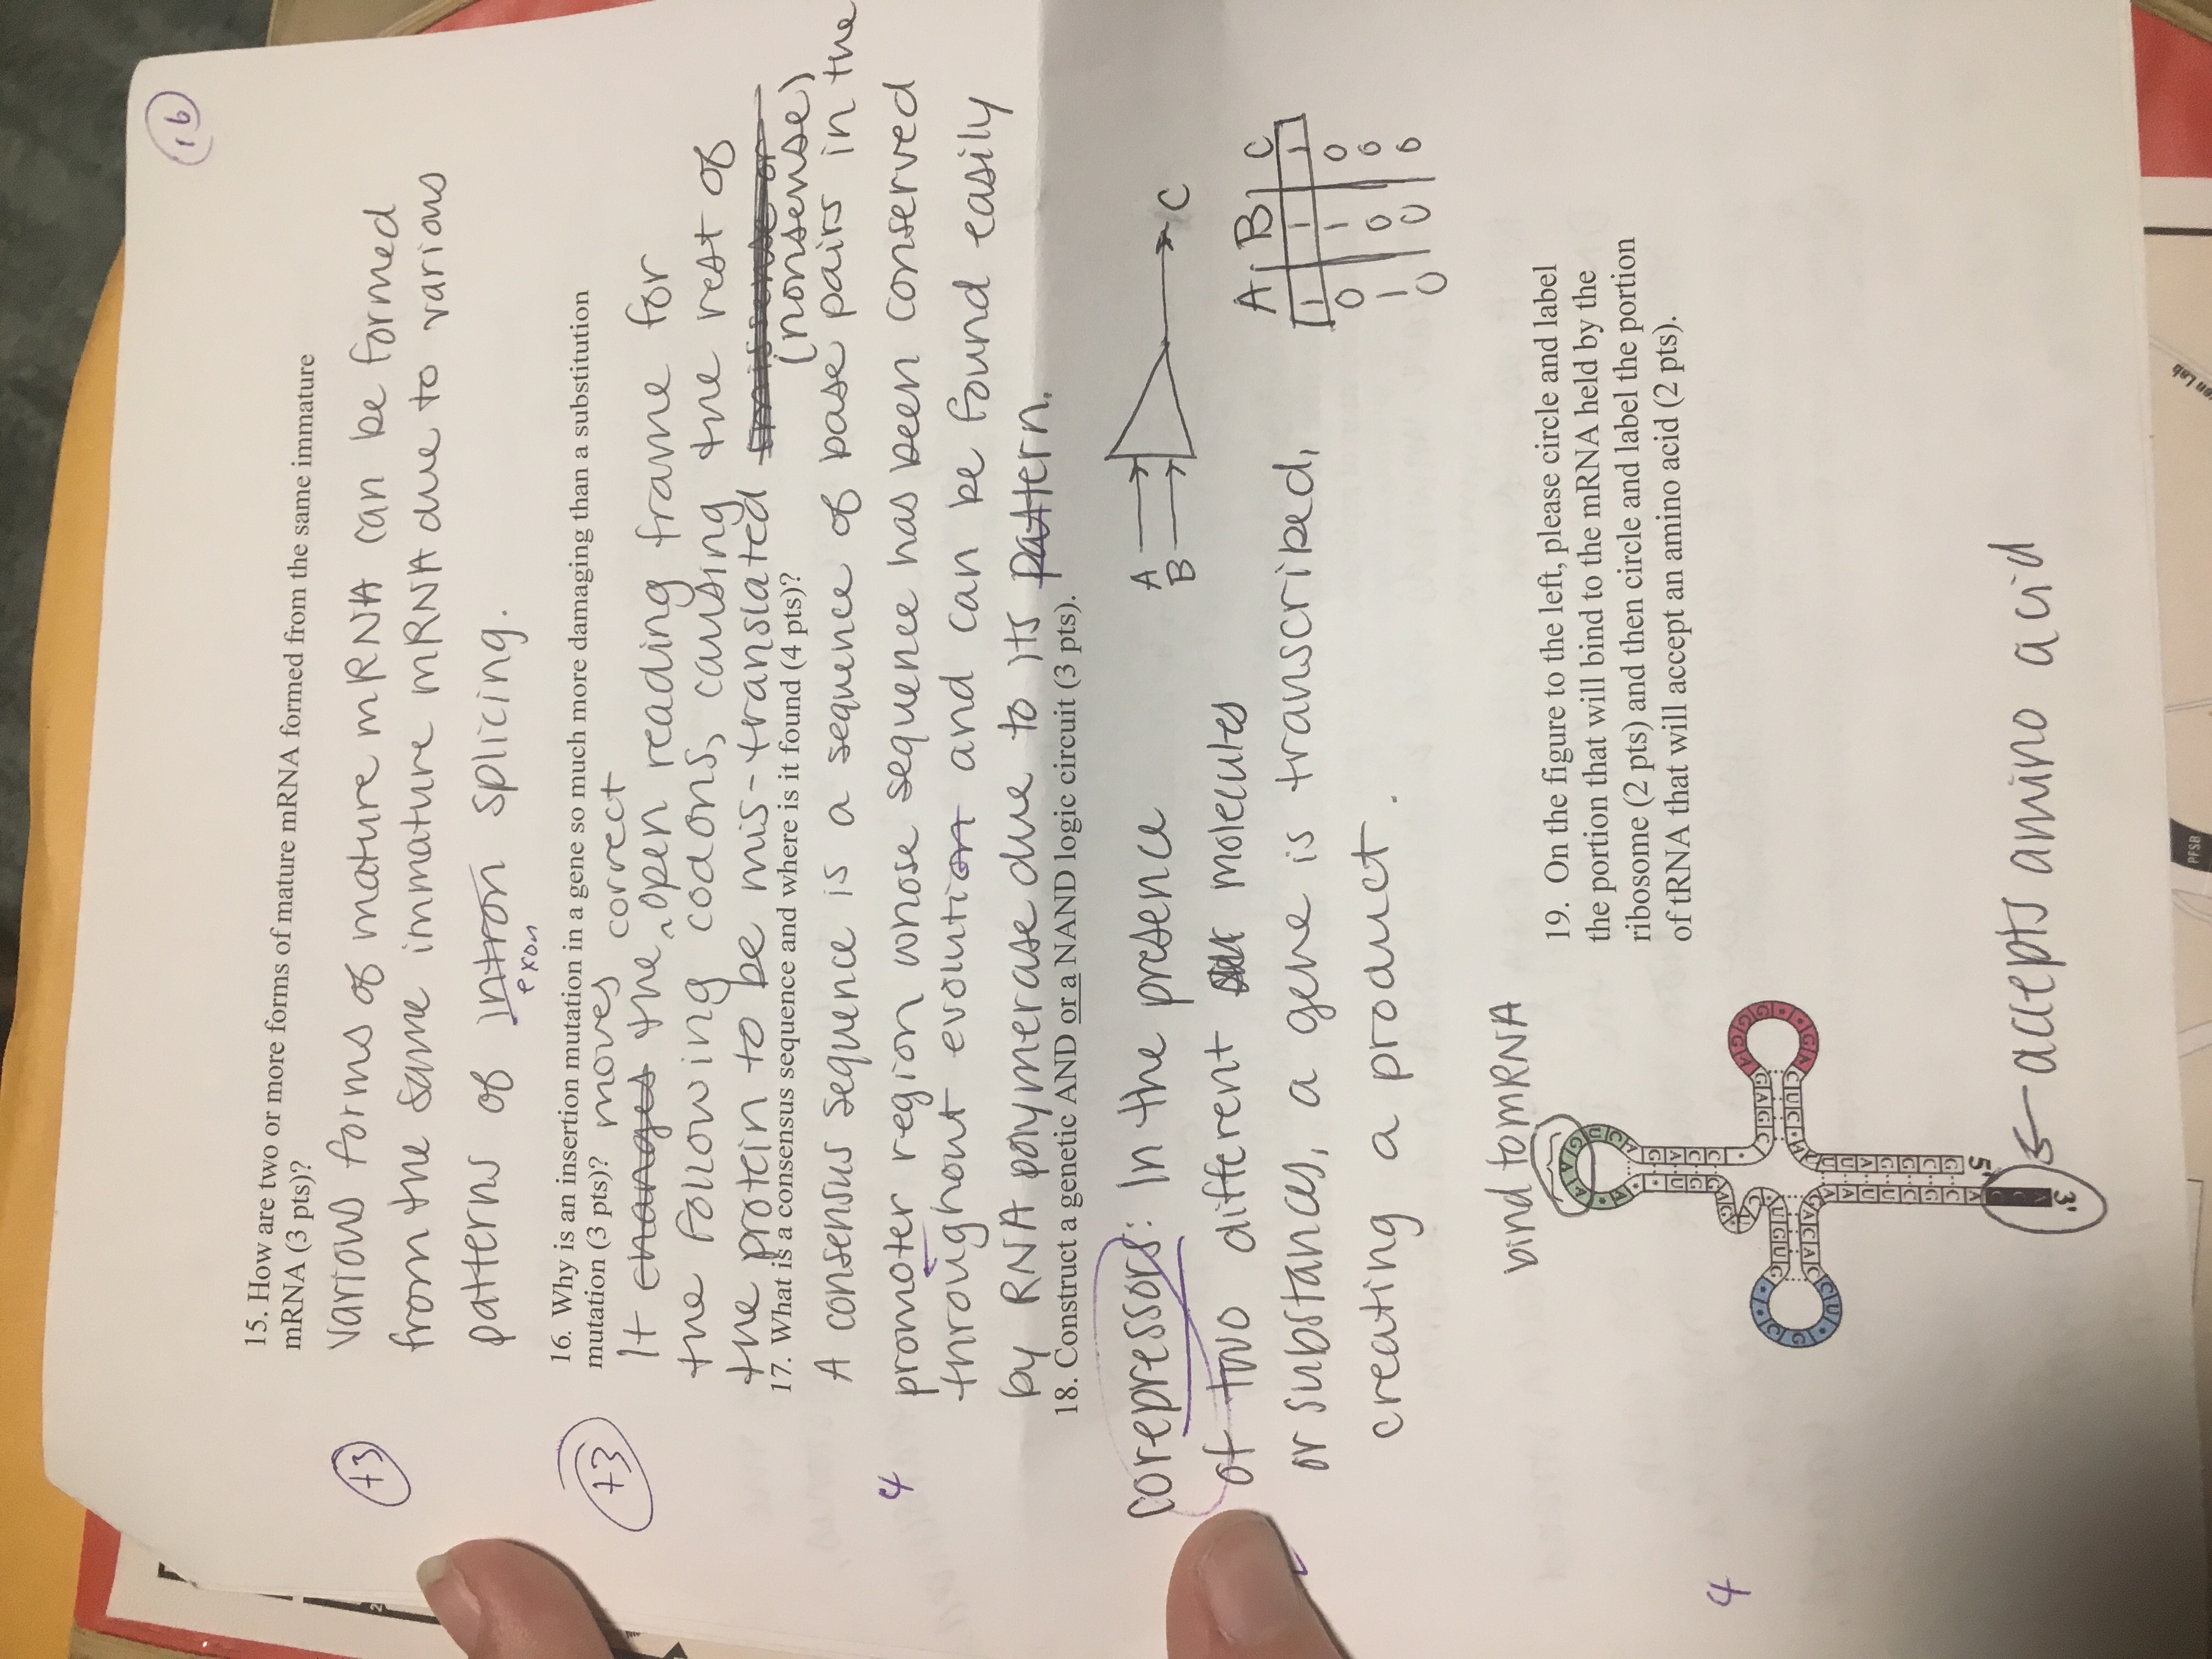 16
15. How are two or more forms of mature mRNA formed from the same immature
mRNA (3 pts)?
+3
various forms of mature mRNA can be formed
from the same immature mRNA due to various
patterns of intron splicing.
exon
16. Why is an insertion mutation in a gene so much more damaging than a substitution
mutation (3 pts)? moves correct
+3
It changes the ^ open reading frame for
the following codons, causing the rest of
the protein to be mis-translated missense or
(nonsense)
17. What is a consensus sequence and where is it found (4 pts)?
A consensus sequence is a sequence of base pairs in the
4
promoter region whose sequence has been conserved
throughout evolution and can be found easily
by RNA polymerase due to its pattern.
18. Construct a genetic AND or a NAND logic circuit (3 pts).
corepressors: In the presence
of two different molecules
or substances, a gene is transcribed,
creating a product.
A
B
C
A B C
1 1 1
0 1 0
1 0 0
0 0 0
bind to mRNA
19. On the figure to the left, please circle and label
the portion that will bind to the mRNA held by the
ribosome (2 pts) and then circle and label the portion
of tRNA that will accept an amino acid (2 pts).
4
5'
3'
accepts amino acid
PFSB
on Lab